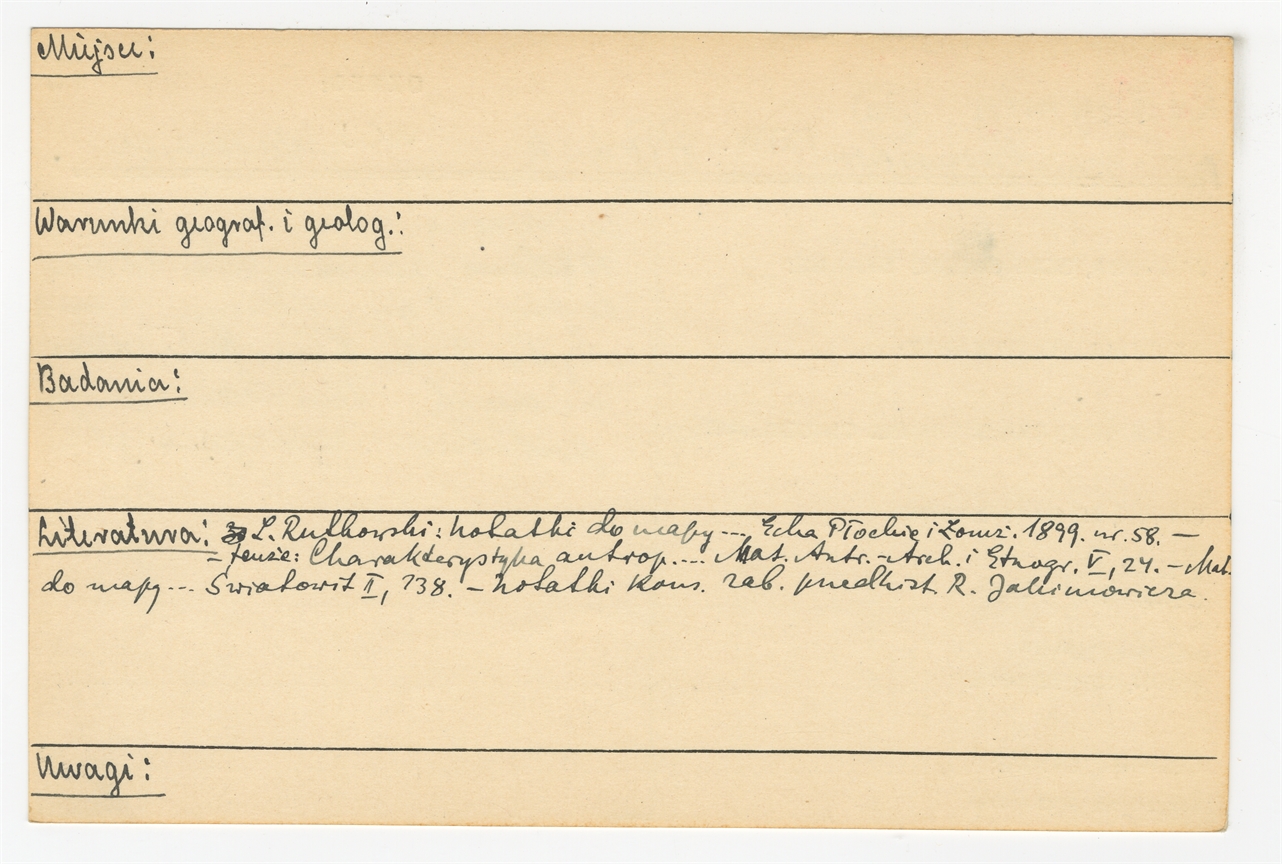 Miejsce:
Warunki geograf. i geolog.:
Badania:
Literatura: L. Rutkowski: Notatki do mapy... Echa Płockie i Łomż. 1899. nr. 58. —
- Tenże: Charakterystyka antrop.... Mat. Antr.-Arch. i Etnogr. V, 24. - Mat.
do mapy... Światowit II, 138. - Notatki kons. zab. przedhist. R. Jakimowicza.
Uwagi: